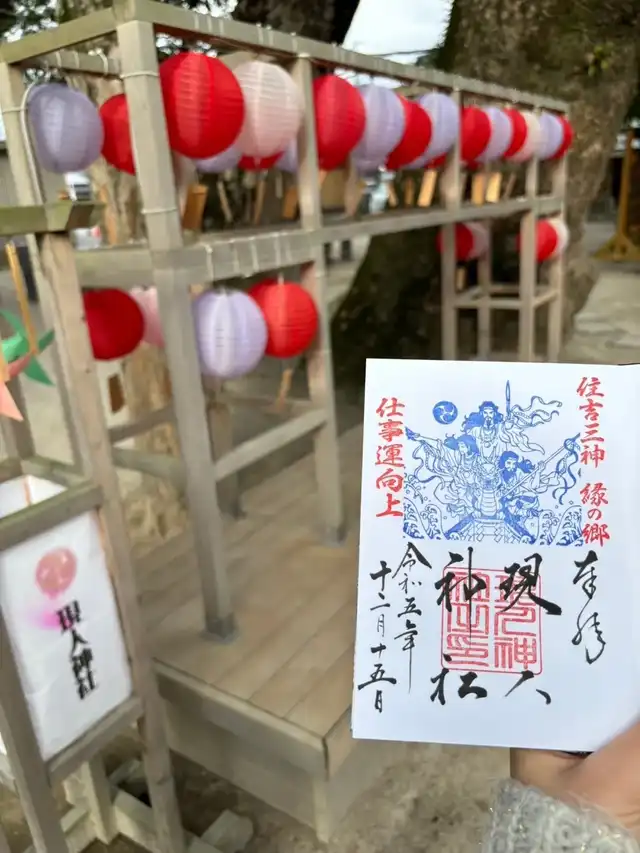 住吉三神 縁の郷
仕事運向上
奉拝
現人
神社
令和五年
十二月十五日
現人神社